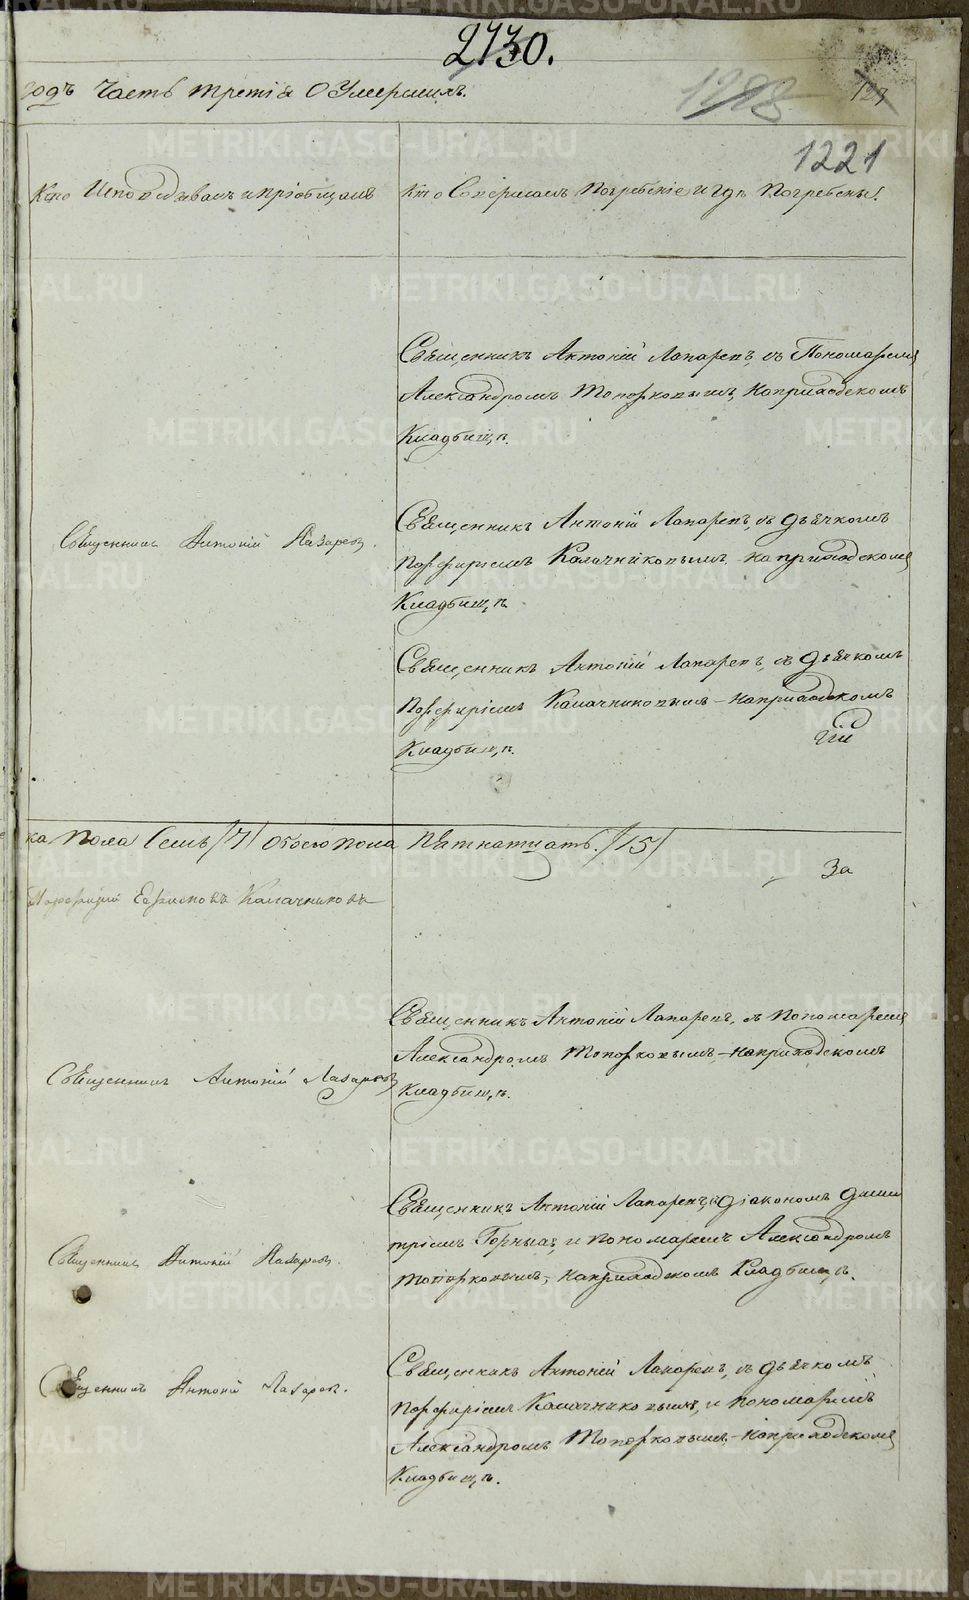 2730.
1223
127
1221
годъ Часть третія О Умершихъ.
Кто Исповедывалъ и пріобщалъ
Кто Совершалъ Погребеніе, и гдѣ Погребены.
Священникъ Антоній Лазаревъ, съ Пономаремъ
Александромъ Топорковымъ, на приходскомъ
Кладбищѣ.
Священникъ Антоній Лазаревъ.
Священникъ Антоній Лазаревъ, съ дьячкомъ
Порфиріемъ Калачниковымъ, на приходскомъ
Кладбищѣ.
Священникъ Антоній Лазаревъ, съ дьячкомъ
Порфиріемъ Калачниковымъ – на приходскомъ
Кладбищѣ.
ка Пола Семь /7/ Обоего пола Пятнатцать. /15/
За
Порфирій Калачниковъ
Священникъ Антоній Лазаревъ, съ пономаремъ
Александромъ Топорковымъ, – на приходскомъ
Кладбищѣ.
Священникъ Антоній Лазаревъ
Священникъ Антоній Лазаревъ, съ діакономъ Дими
тріемъ Горныхъ, и пономаремъ Александромъ
Топорковымъ, – на приходскомъ Кладбищѣ.
Священникъ Антоній Лазаревъ.
Священникъ Антоній Лазаревъ, съ дьячкомъ
Порфиріемъ Калачниковымъ, и пономаремъ
Александромъ Топорковымъ – на приходскомъ
Кладбищѣ.
Священникъ Антоній Лазаревъ.
METRIKI.GASO-URAL.RU